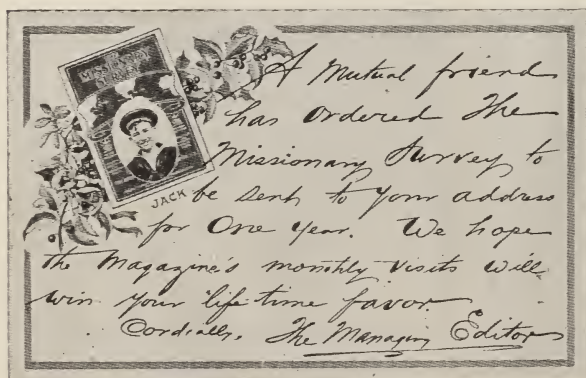 THE
MISSIONARY
SURVEY
JACK
A Mutual friend
has ordered The
Missionary Survey to
be sent to your address
for One year. We hope
the Magazine's monthly visits will
win your life time favor.
Cordially, The Managing Editor